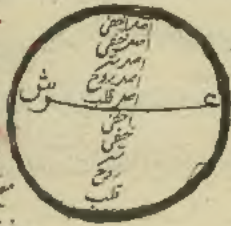 اصل اخفی
اصل خفی
اصل سر
اصل روح
اصل قلب
عرش
اخفی
خفی
سر
روح
قلب